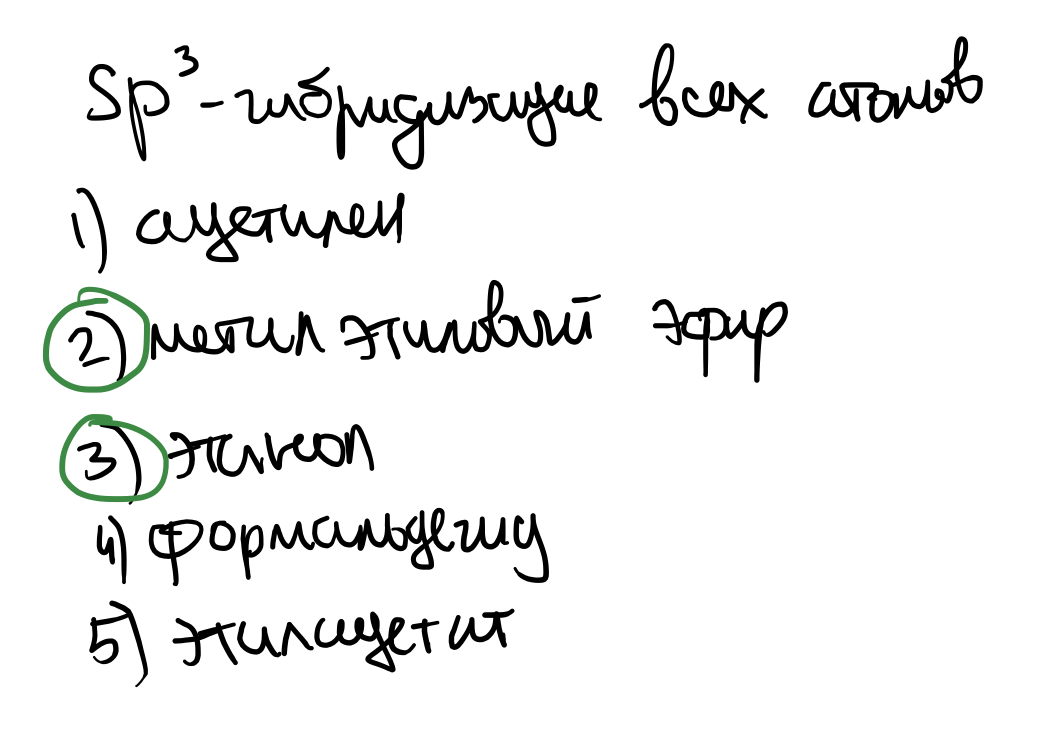 Sp³-гибридизация всех атомов
1) ацетилен
2) метилэтиловый эфир
3) этанол
4) формальдегид
5) этилацетат